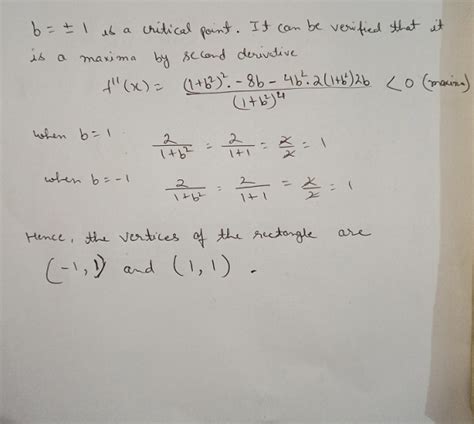 b = ± 1 is a critical point. It can be verified that it
is a maxima by second derivative
f''(x) = (1+b²)².-8b - 4b².2(1+b²)2b / (1+b²)⁴ < 0 (maxima)
when b=1 2/(1+b²) = 2/(1+1) = 2/2 = 1
when b=-1 2/(1+b²) = 2/(1+1) = 2/2 = 1
Hence, the vertices of the rectangle are
(-1,1) and (1,1).